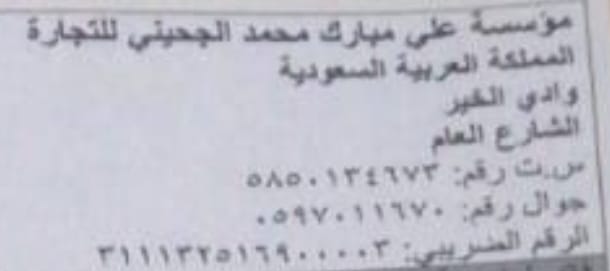 مؤسسة علي مبارك محمد الجحيني للتجارة
المملكة العربية السعودية
وادي الخير
الشارع العام
س.ت رقم: ٥٨٥٠١٣٤٦٧٣
جوال رقم: ٠٥٩٧٠١١٦٧٠
الرقم الضريبي: ٣١١١٣٢٥١٦٩٠٠٠٠٣